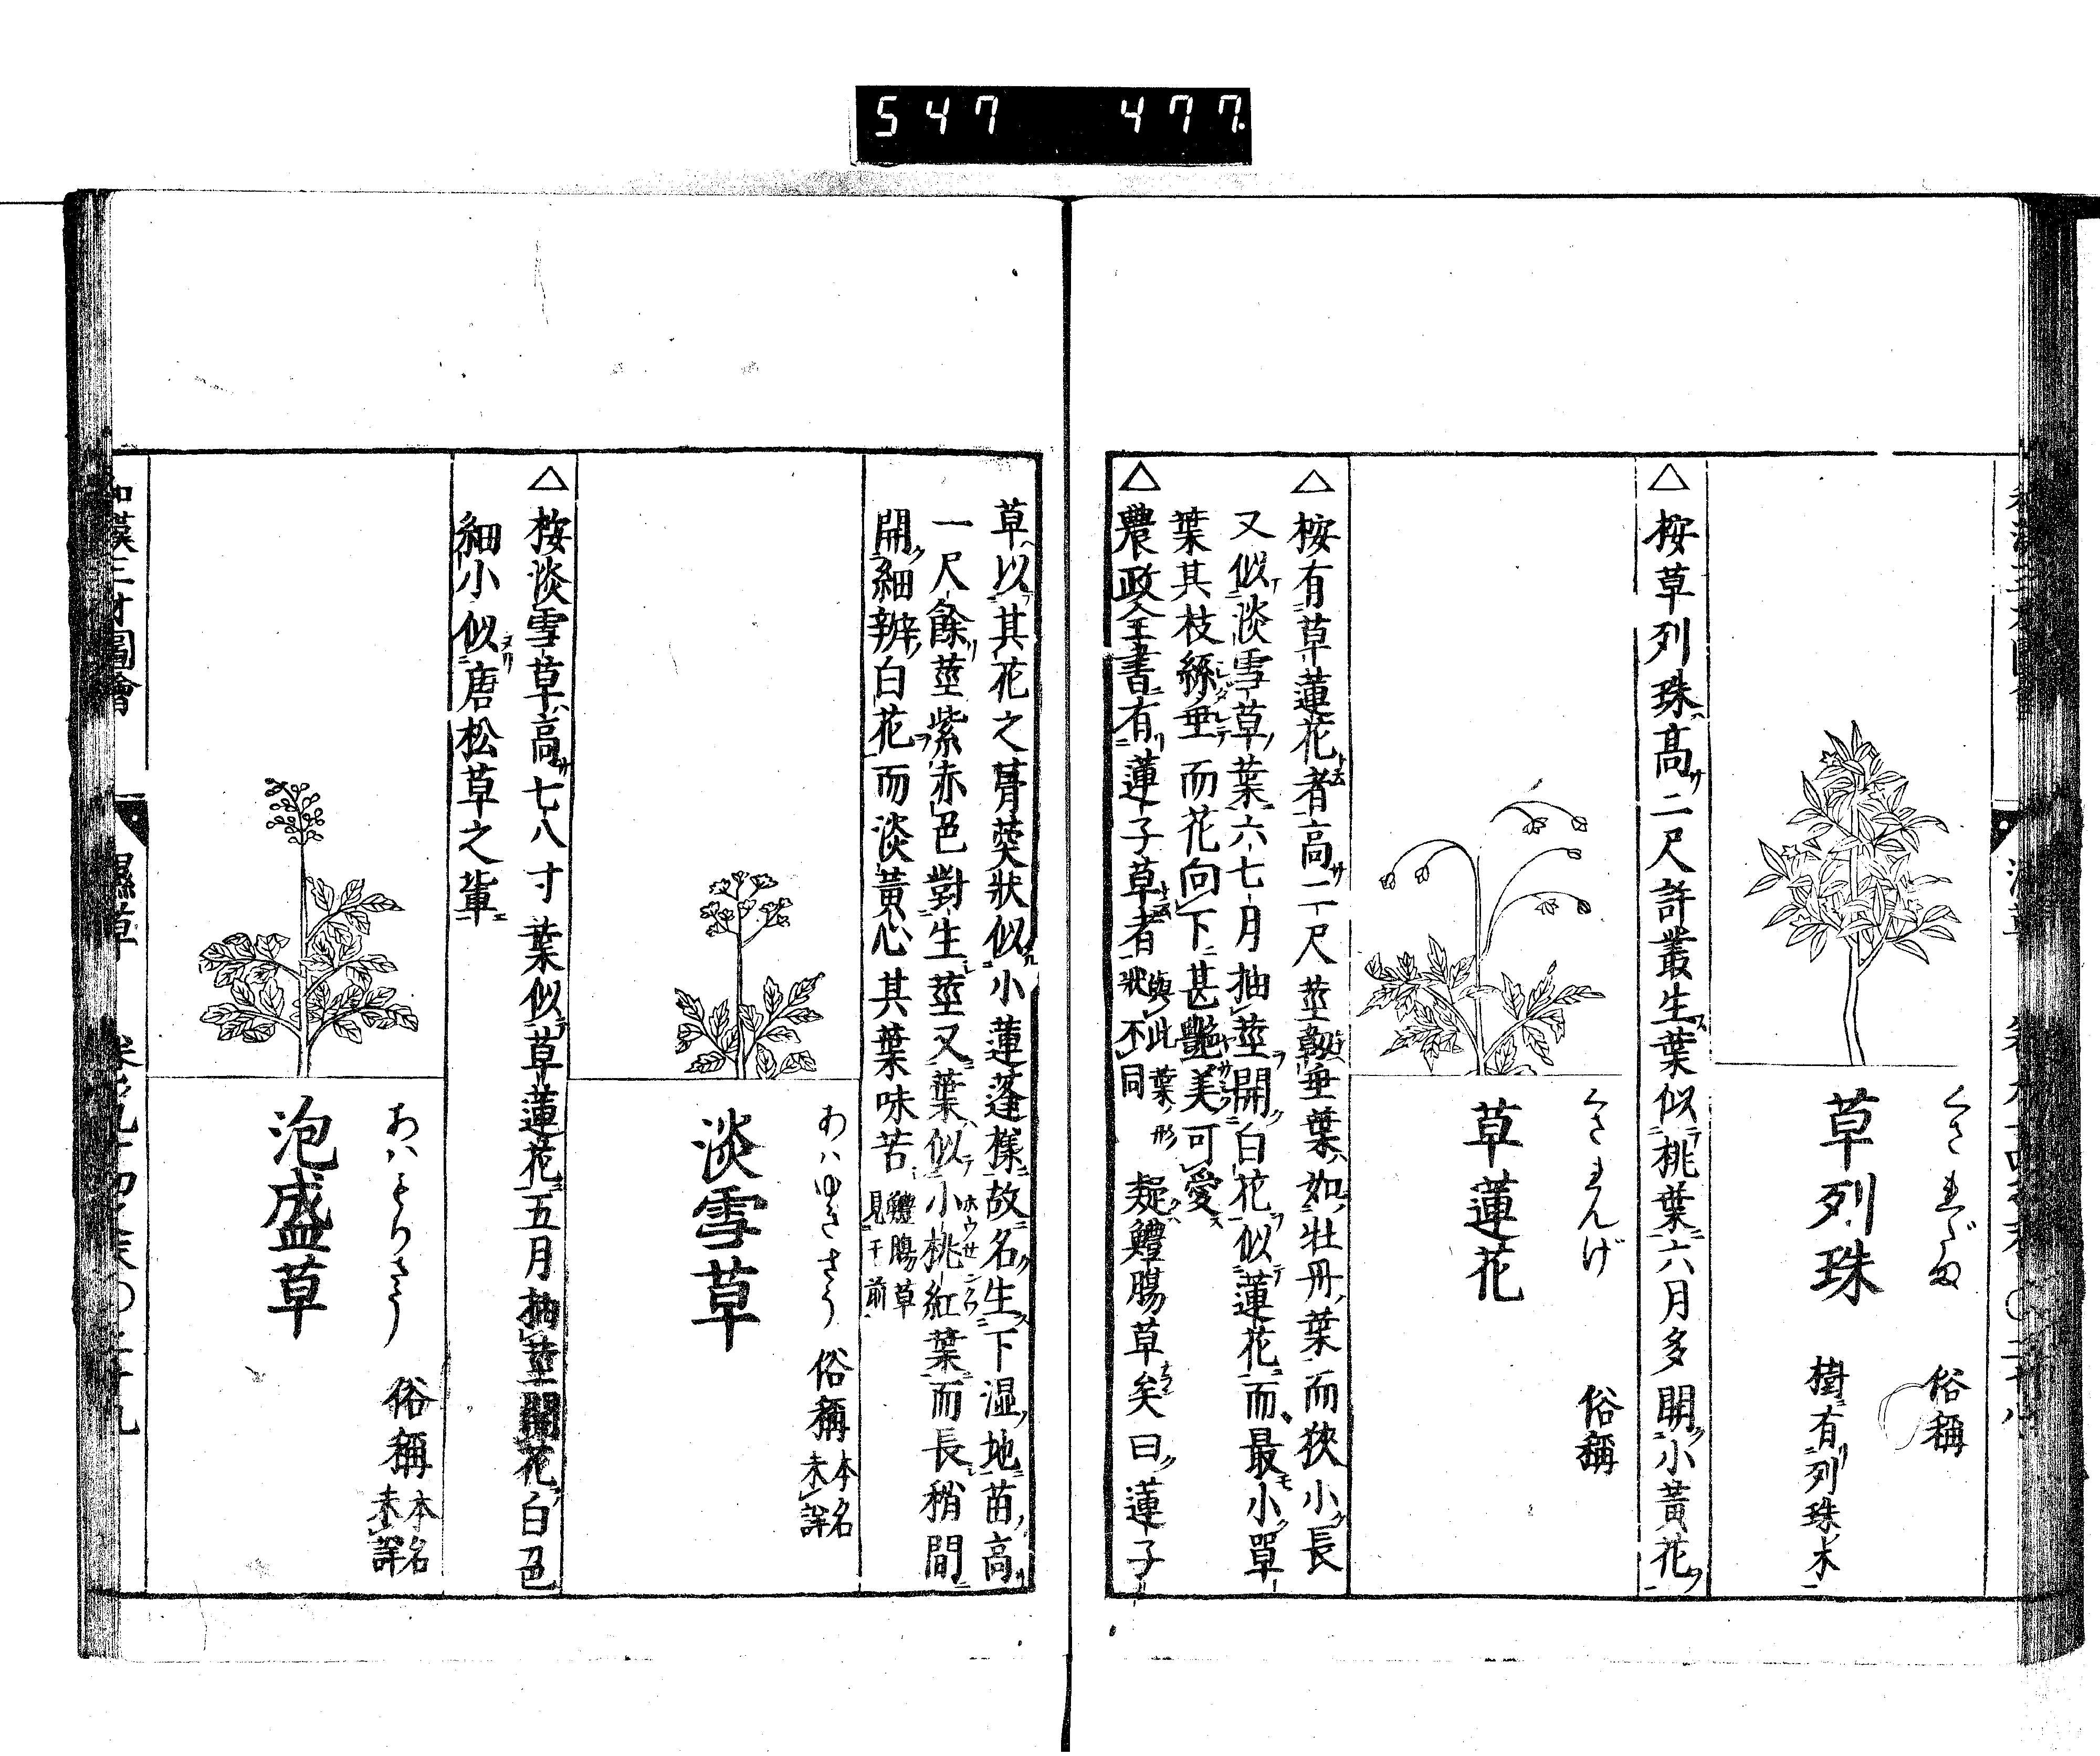 547 477
くされだま 俗稱
草列珠 樹有列珠木
△按草列珠高二尺許叢生葉似桃葉六月多開小黃花
くされんげ 俗稱
草蓮花
△按有草蓮花者高二尺莖韌垂葉如牡丹葉而狹小長
又似淡雪草葉六七月抽莖開白花似蓮花而最小單
葉其枝絲垂而花向下甚艶美可愛
△農政全書有蓮子草者與此葉形狀不同疑鱧腸草矣曰蓮子
草以其花之蓇葖狀似小蓮蓬樣故名生下湿地苗高
一尺餘莖紫赤色對生莖叉葉似小桃紅葉而長稍間
開細辦白花而淡黃心其葉味苦鱧腸草見于前
あはゆきさう 俗稱本名未詳
淡雪草
△按淡雪草高七八寸葉似草蓮花五月抽莖開花白色
細小似唐松草之輩
あはもりさう 俗稱本名未詳
泡盛草
和漢三才圖會 濕草